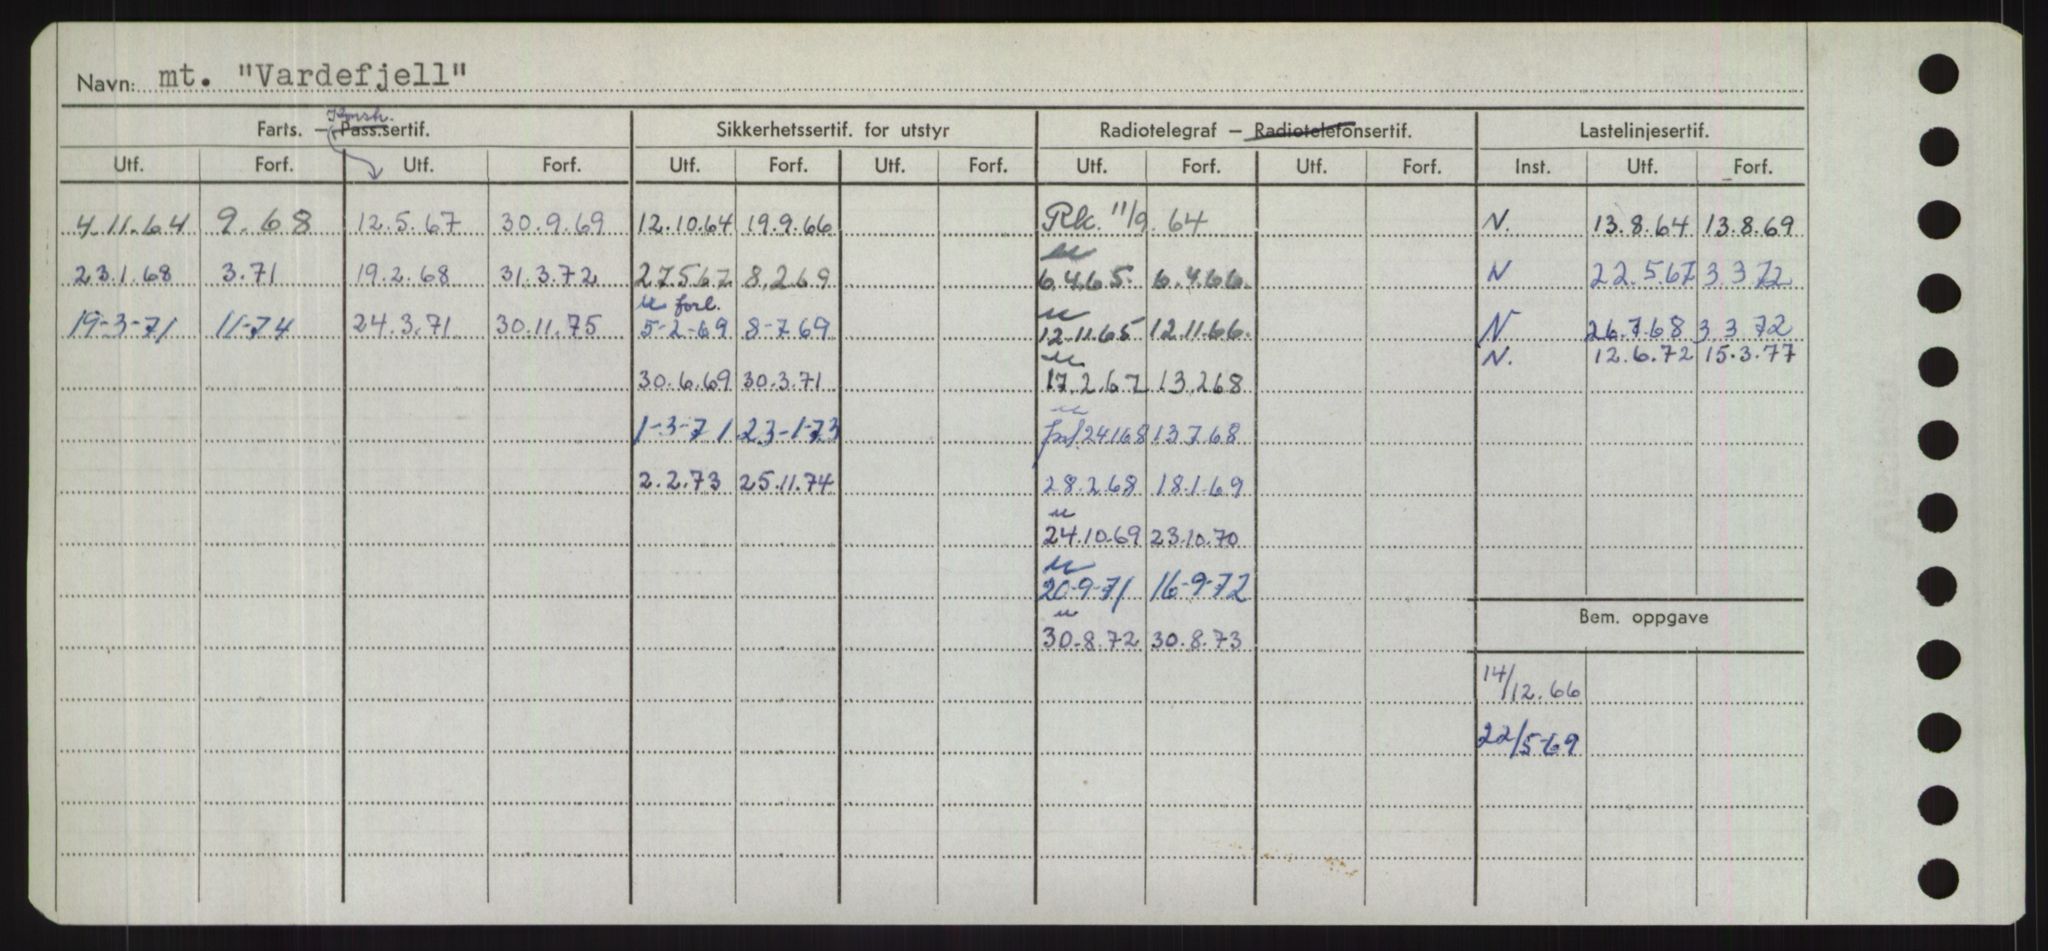 Navn: mt. "Vardefjell"
Konstr.
Farts. – Pass.sertif. Sikkerhetssertif. for utstyr Radiotelegraf – Radiotelefonsertif. Lastelinjesertif.
Utf. Forf. Utf. Forf. Utf. Forf. Utf. Forf. Utf. Forf. Utf. Forf. Inst. Utf. Forf.
4.11.64 9.68 12.5.67 30.9.69 12.10.64 19.9.66 Rk. 11/9.64 N. 13.8.64 13.8.69
u
23.1.68 3.71 19.2.68 31.3.72 27.5.67 8.2.69 6.4.65 6.4.66. N 22.5.67 3.3.72
u forl. u
19-3-71 11-74 24.3.71 30.11.75 5-2-69 8-7.69 12.11.65 12.11.66. N 26.7.68 3.3.72
u N. 12.6.72 15.3.77
30.6.69 30.3.71 17.2.67 13.2.68
u
1-3-71 23-1-73 forl 24.1.68 13.7.68
2.2.73 25.11.74 28.2.68 18.1.69
u
24.10.69 23.10.70
u
20-9-71 16-9-72
u
30.8.72 30.8.73
Bem. oppgave
14/12.66
22/5-69